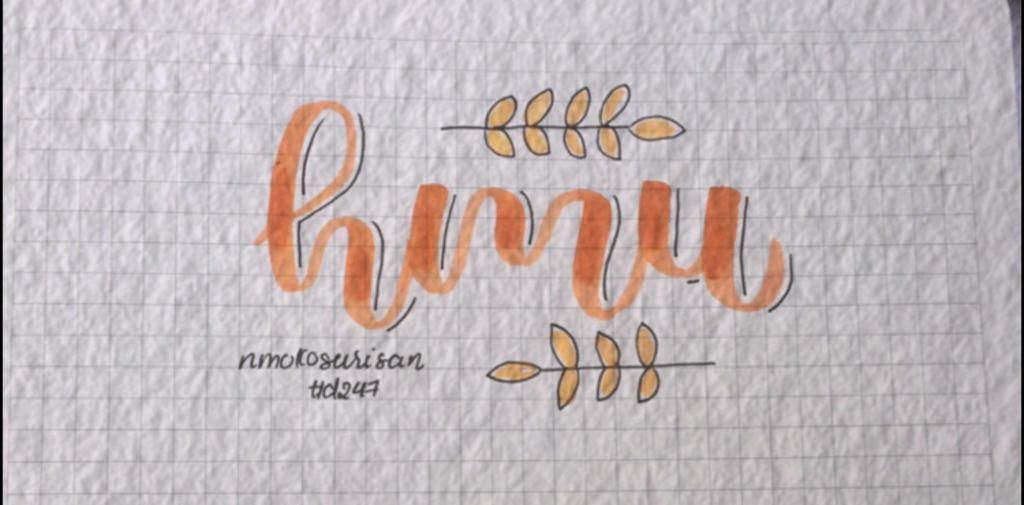 hmu
nmokosurisan
ttd247